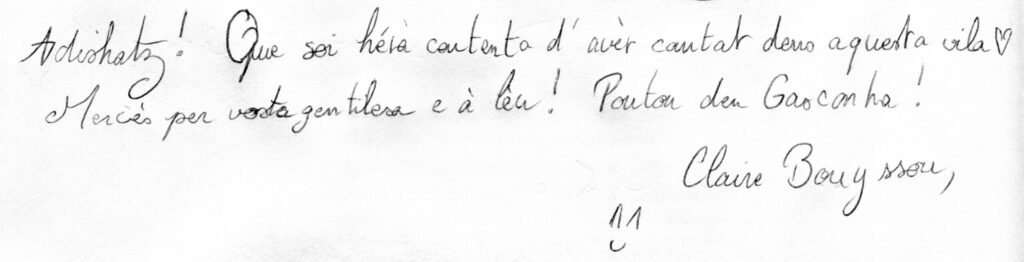 Adishatz! Que soi hèra contenta d'aver cantat dens aquesta vila ♡
Mercés per vosta gentilesa e à lèu! Poutou deu Gasconha!
Claire Bouyssou,